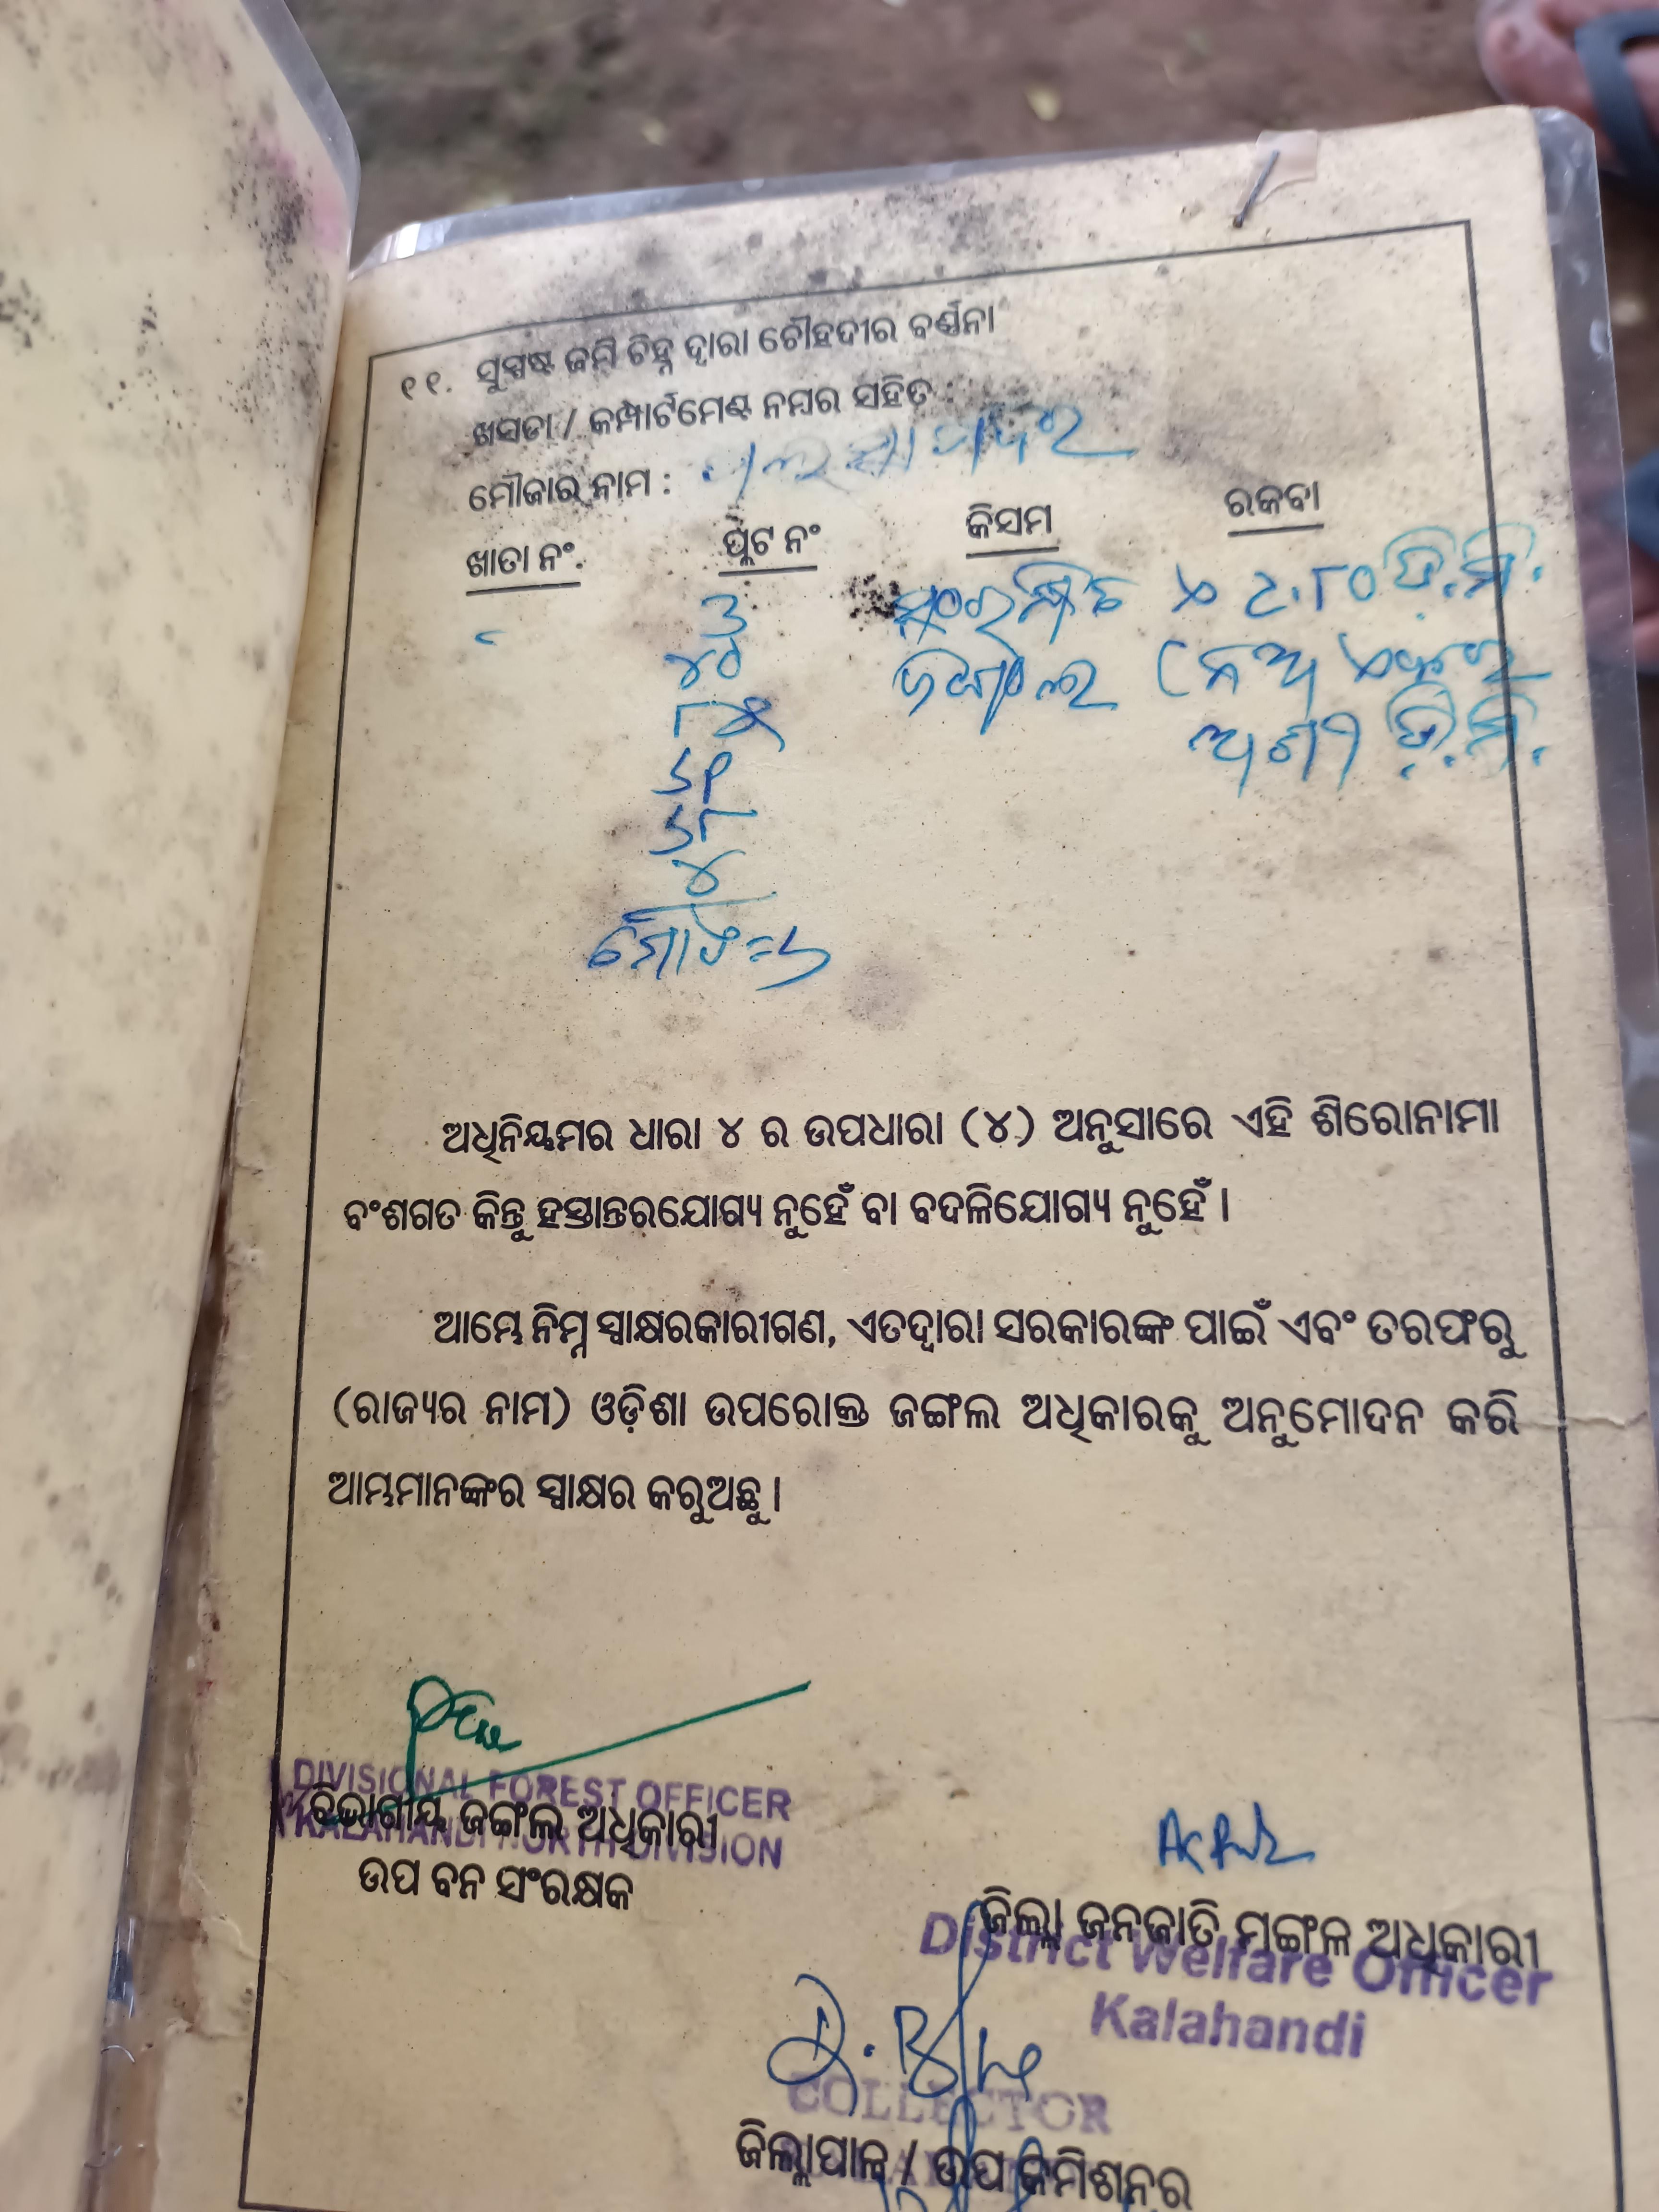 ୧୧. ସୁସ୍ପଷ୍ଟ ଜମି ଚିହ୍ନ ଦ୍ୱାରା ଚୌହଦୀର ବର୍ଣ୍ଣନା
ଖସଡା / କମ୍ପାର୍ଟମେଣ୍ଟ ନମ୍ବର ସହିତ
ମୌଜାର ନାମ :
ଖାତା ନଂ. ପ୍ଲଟ ନଂ କିସମ ରକବା
୩ ସଂରକ୍ଷିତ ୮୦ ଡି.ମି.
୪୦ ଜଙ୍ଗଲ (ନଅ
ଅଶୀ ଡି.ମି.
୬୮
୪
ମୋଟ=୬
ଅଧିନିୟମର ଧାରା ୪ ର ଉପଧାରା (୪) ଅନୁସାରେ ଏହି ଶିରୋନାମା
ବଂଶଗତ କିନ୍ତୁ ହସ୍ତାନ୍ତରଯୋଗ୍ୟ ନୁହେଁ ବା ବଦଳିଯୋଗ୍ୟ ନୁହେଁ ।
ଆମ୍ଭେ ନିମ୍ନ ସ୍ୱାକ୍ଷରକାରୀଗଣ, ଏତଦ୍ୱାରା ସରକାରଙ୍କ ପାଇଁ ଏବଂ ତରଫରୁ
(ରାଜ୍ୟର ନାମ) ଓଡ଼ିଶା ଉପରୋକ୍ତ ଜଙ୍ଗଲ ଅଧିକାରକୁ ଅନୁମୋଦନ କରି
ଆମ୍ଭମାନଙ୍କର ସ୍ୱାକ୍ଷର କରୁଅଛୁ ।
DIVISIONAL FOREST OFFICER
ବିଭାଗୀୟ ଜଙ୍ଗଲ ଅଧିକାରୀ
KALAHANDI NORTH DIVISION
ଉପ ବନ ସଂରକ୍ଷକ
ଜିଲ୍ଲା ଜନଜାତି ମଙ୍ଗଳ ଅଧିକାରୀ
District Welfare Officer
Kalahandi
COLLECTOR
ଜିଲ୍ଲାପାଳ / ଉପ କମିଶନର